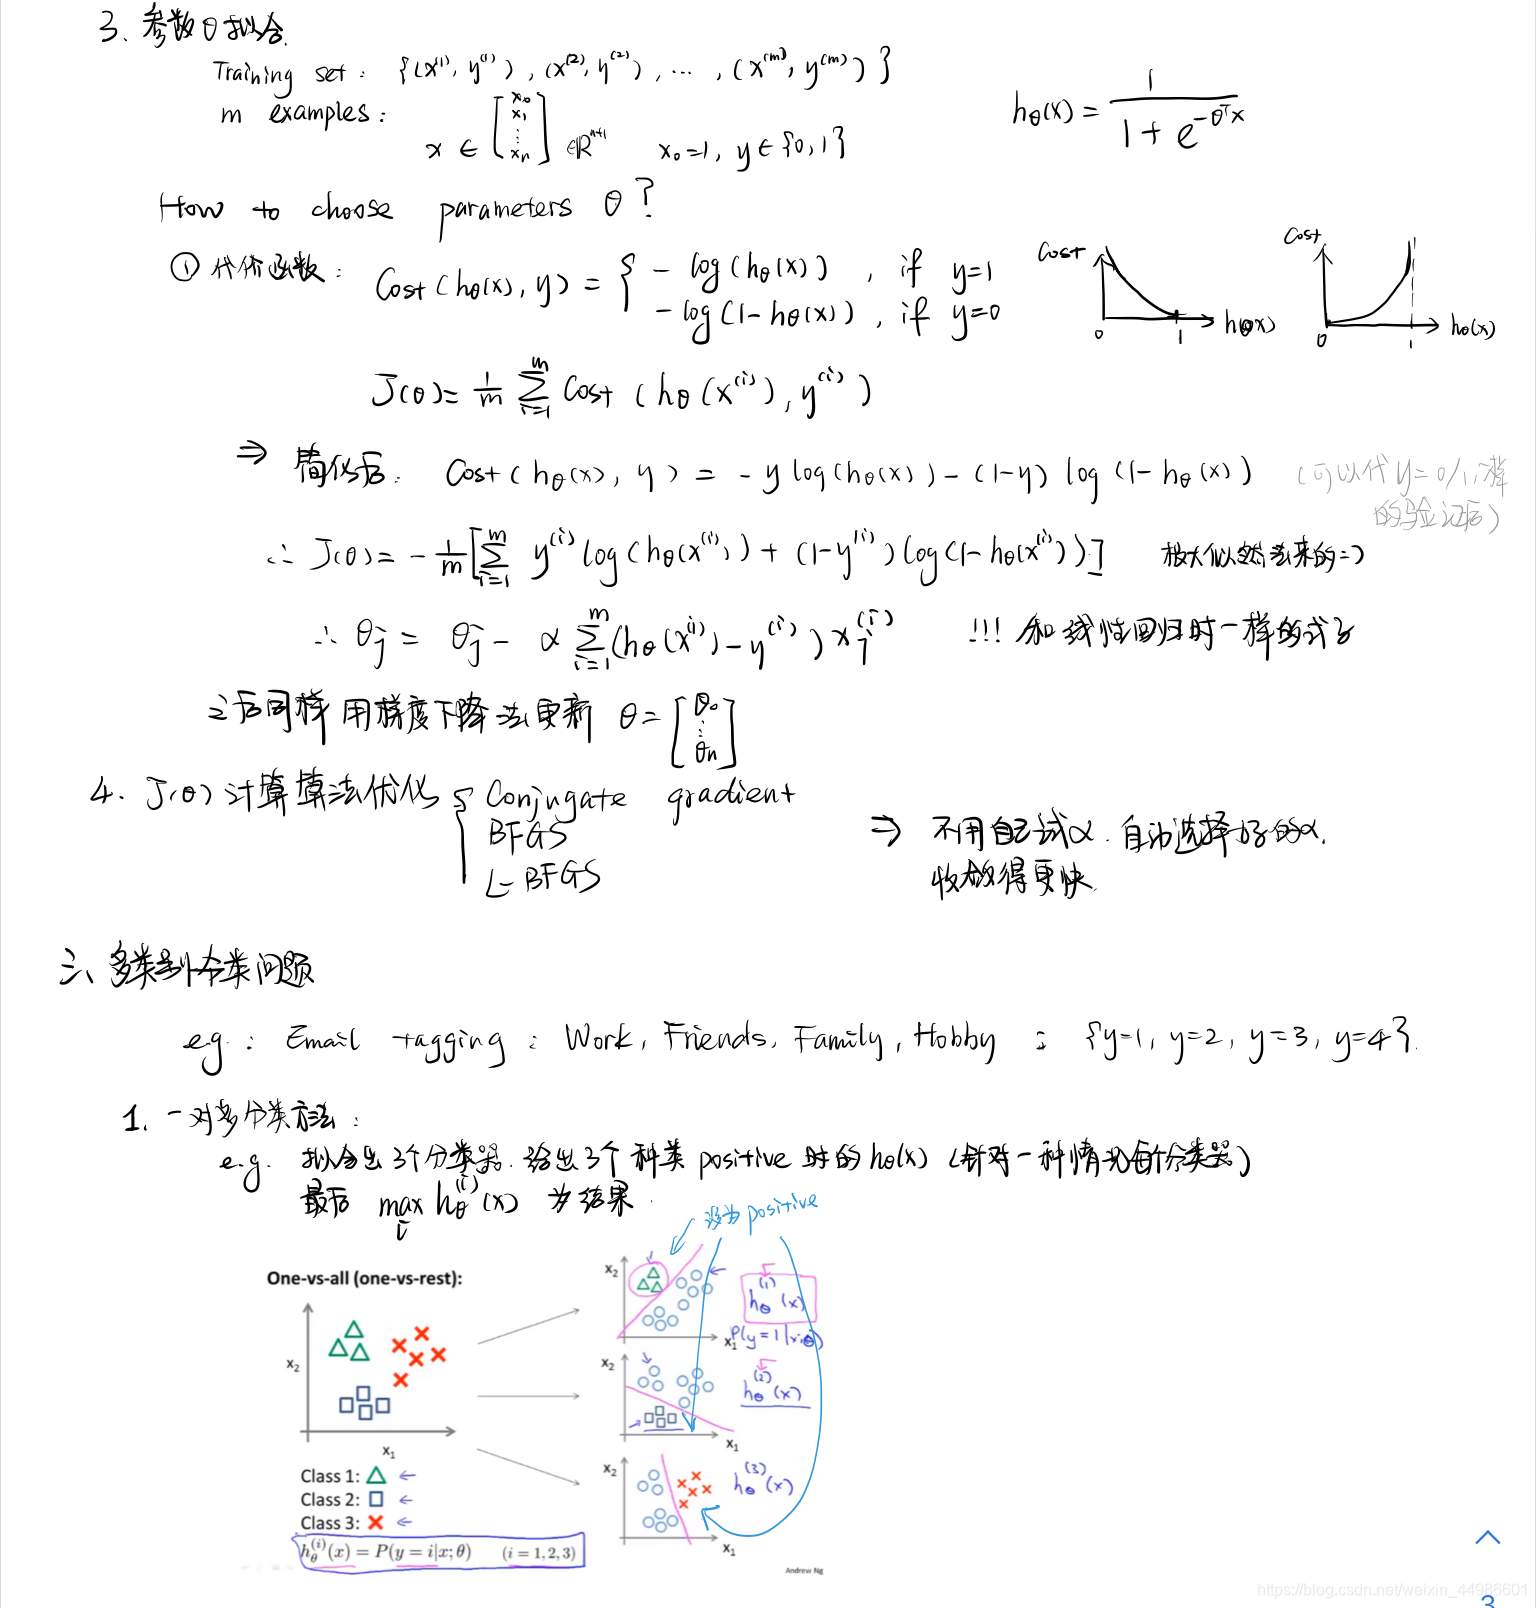 3. 参数θ拟合
Training set: {(x⁽¹⁾, y⁽¹⁾), (x⁽²⁾, y⁽²⁾), ..., (x⁽ᵐ⁾, y⁽ᵐ⁾)}
m examples: x ∈ [x₀ x₁ ⋮ xₙ] ∈ ℝⁿ⁺¹ x₀=1, y ∈ {0,1}
hθ(x) = 1 / (1 + e^(-θᵀx))
How to choose parameters θ?
① 代价函数: Cost(hθ(x), y) = { -log(hθ(x)), if y=1
-log(1-hθ(x)), if y=0
Cost 0 1 hθ(x)
Cost 0 1 hθ(x)
J(θ) = 1/m Σ_{i=1}^{m} Cost(hθ(x⁽ⁱ⁾), y⁽ⁱ⁾)
⇒ 简化后: Cost(hθ(x), y) = -y log(hθ(x)) - (1-y) log(1-hθ(x)) (可以代y=0/1
∴ J(θ) = -1/m [Σ_{i=1}^{m} y⁽ⁱ⁾ log(hθ(x⁽ⁱ⁾)) + (1-y⁽ⁱ⁾) log(1-hθ(x⁽ⁱ⁾))] 极大似然法来的=)
∴ θj = θj - α Σ_{i=1}^{m} (hθ(x⁽ⁱ⁾) - y⁽ⁱ⁾) xj⁽ⁱ⁾ !!! 和线性回归时一样的式子
之后同样用梯度下降法更新 θ = [θ₀ ⋮ θn]
4. J(θ)计算算法优化 { Conjugate gradient
BFGS
L-BFGS
⇒ 不用自己试α. 自动选择好的α.
收敛得更快.
三、多类别分类问题
eg: Email tagging: Work, Friends, Family, Hobby : {y=1, y=2, y=3, y=4}.
1. 一对多分类方法:
e.g. 拟合出3个分类器. 给出3个种类positive时的hθ(x) (针对一种情况每个分类器)
最后 max_i hθ⁽ⁱ⁾(x) 为结果.
设为positive
One-vs-all (one-vs-rest):
x₂
x₁
Class 1: △
Class 2: □
Class 3: ×
hθ⁽ⁱ⁾(x) = P(y = i|x; θ) (i = 1, 2, 3)
x₂
x₁
hθ⁽¹⁾(x)
P(y=1|x;θ)
x₂
x₁
hθ⁽²⁾(x)
x₂
x₁
hθ⁽³⁾(x)
Andrew Ng
https://blog.csdn.net/weixin_44986601
3